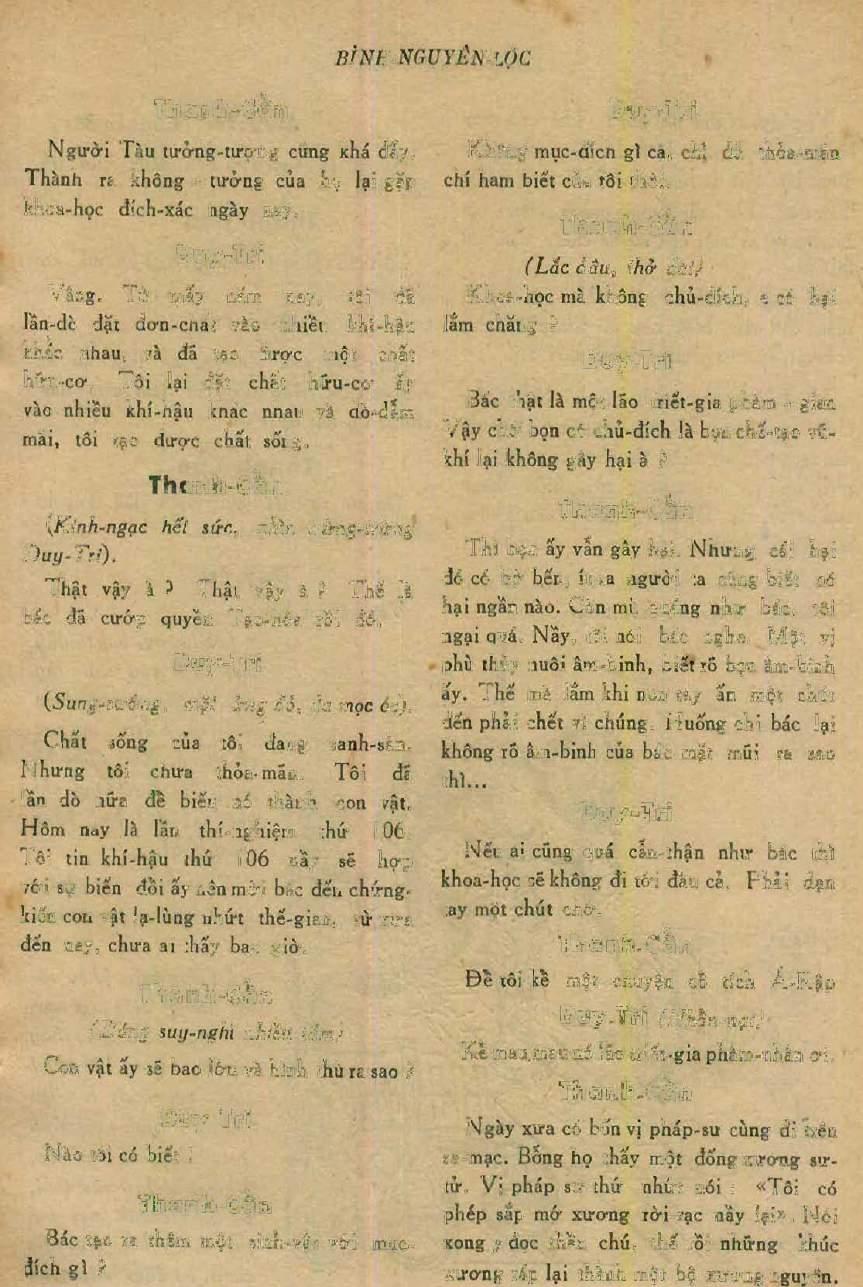 BÌNH NGUYÊN-LỘC
Thanh-Cần
Người Tàu tưởng-tượng cũng khá đấy.
Thành ra không-tưởng của họ lại gặp
khoa-học đích-xác ngày nay.
Duy-Tri
Vâng. Từ mấy năm nay, tôi đã
lần-dò đặt đơn-chất vào nhiều khí-hậu
khác nhau, và đã tạo được một chất
hữu-cơ. Tôi lại đặt chất hữu-cơ ấy
vào nhiều khí-hậu khác nhau và dò-dẫm
mãi, tôi tạo được chất sống.
Thanh-Cần
(Kinh-ngạc hết sức, nhìn
Duy-Tri).
Thật vậy à ? Thật vậy à ? Thế là
bác đã cướp quyền Tạo-hóa rồi đó.
Duy-Tri
(Sung-sướng, mặt ửng đỏ, da mọc ốc).
Chất sống của tôi đang sanh-sản.
Nhưng tôi chưa thỏa-mãn. Tôi đã
lần dò nữa để biến nó thành con vật.
Hôm nay là lần thí-nghiệm thứ 106.
Tôi tin khí-hậu thứ 106 nầy sẽ hợp
với sự biến đổi ấy nên mời bác đến chứng-
kiến con vật lạ-lùng nhứt thế-gian, từ xưa
đến nay, chưa ai thấy bao giờ.
Thanh-Cần
(Đứng suy-nghĩ nhiều lắm)
Con vật ấy sẽ bao lớn và hình thù ra sao ?
Duy-Tri
Nào tôi có biết !
Thanh-Cần
Bác tạo ra thêm một sinh-vật với mục-
đích gì ?
Duy-Tri
Không mục-đích gì cả, chỉ để thỏa-mãn
chí ham biết của tôi thôi.
Thanh-Cần
(Lắc đầu, thở dài)
Khoa-học mà không chủ-đích, e có hại
lắm chăng ?
Duy-Tri
Bác thật là một lão triết-gia phàm-gian
Vậy chớ bọn có chủ-đích là bọn chế-tạo vũ-
khí lại không gây hại à ?
Thanh-Cần
Thì bọn ấy vẫn gây hại. Nhưng cái hại
đó có bờ bến, người ta cũng biết nó
hại ngần nào. Còn mù quáng như bác, tôi
ngại quá. Nầy, tôi nói bác nghe. Một vị
phù thủy nuôi âm-binh, biết rõ bọn âm-binh
ấy. Thế mà lắm khi non tay ấn một chút
đến phải chết vì chúng. Huống chi bác lại
không rõ âm-binh của bác mặt mũi ra sao
thì...
Duy-Tri
Nếu ai cũng quá cẩn-thận như bác thì
khoa-học sẽ không đi tới đâu cả. Phải dạn
tay một chút chớ.
Thanh-Cần
Để tôi kể một chuyện cổ tích Á-Rập
Duy-Tri
Kể mau, mau triết-gia phàm-nhân ơi.
Thanh-Cần
Ngày xưa có bốn vị pháp-sư cùng đi trên
sa-mạc. Bỗng họ thấy một đống xương sư-
tử. Vị pháp sư thứ nhứt nói : «Tôi có
phép sắp mớ xương rời rạc nầy lại». Nói
xong, đọc thần chú, thế rồi những khúc
xương ráp lại thành một bộ xương nguyên.